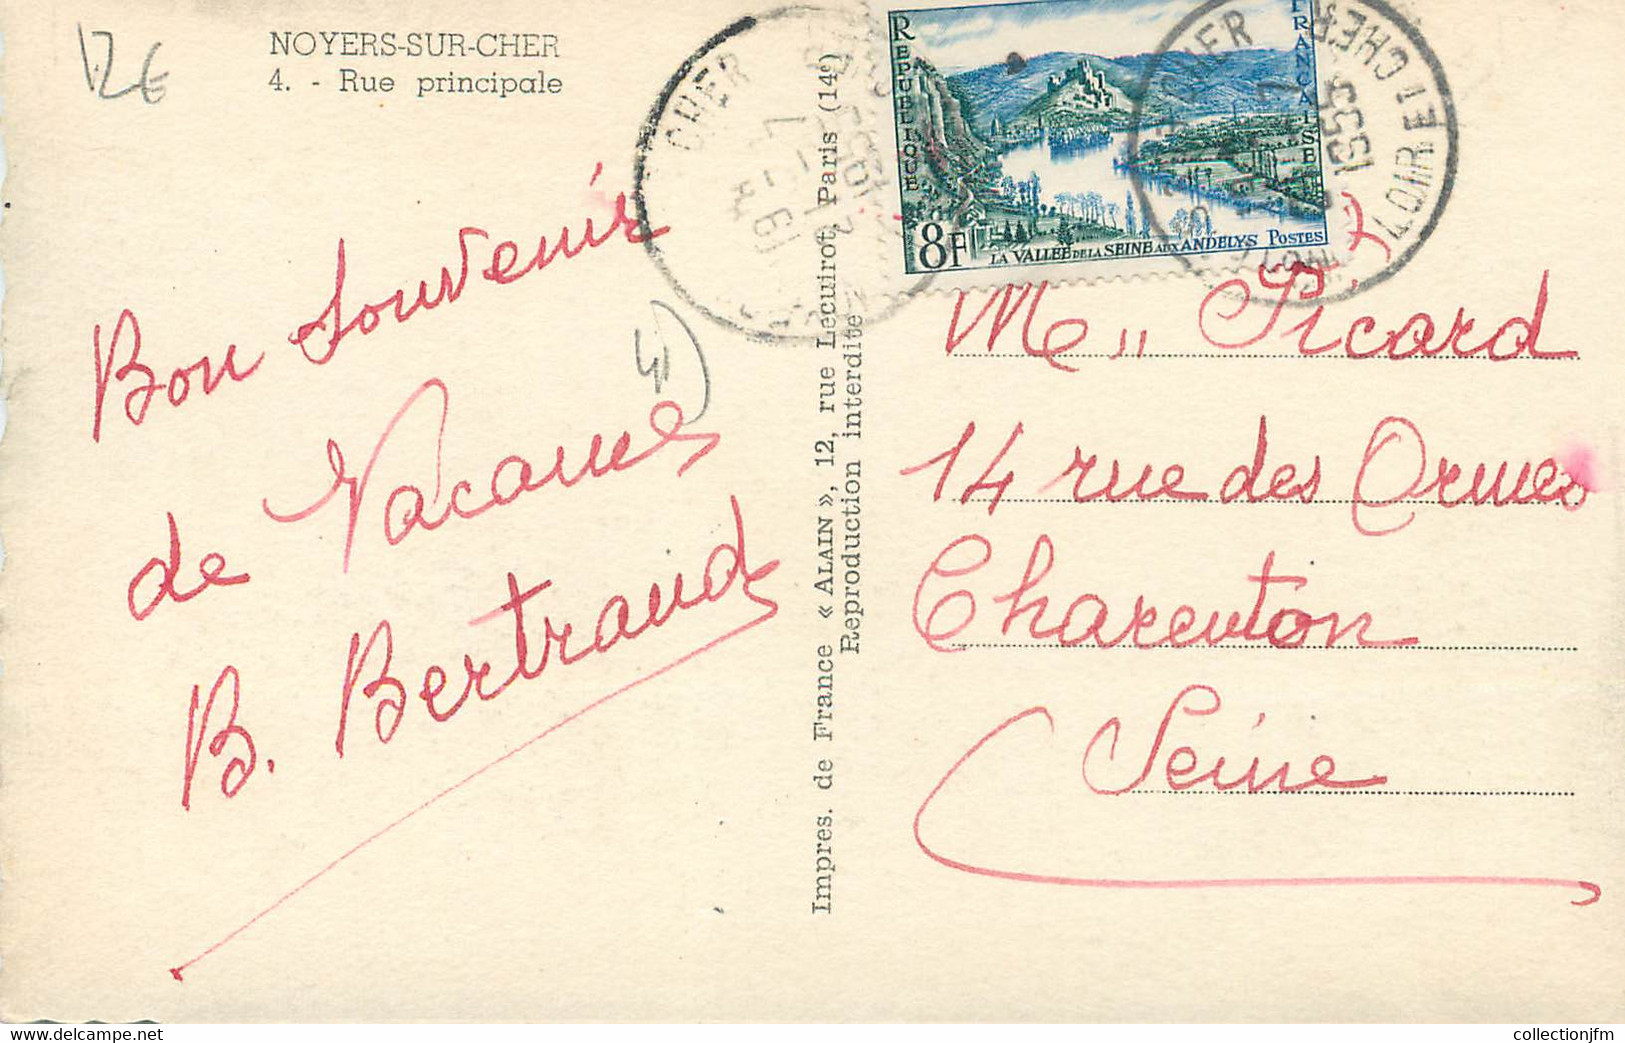 12€
NOYERS-SUR-CHER
4. - Rue principale
Bon Souvenir
de Vacances
B. Bertrand
41
Impres. de France « ALAIN », 12, rue Lecuirot, Paris (14e)
Reproduction interdite
REPUBLIQUE
FRANCAISE
8F
LA VALLÉE DE LA SEINE AUX ANDELYS POSTES
CHER
1955
CHER
LOIR ET CHER
1955
Me,, Picard
14 rue des Ormes
Charenton
Seine
collectionjfm